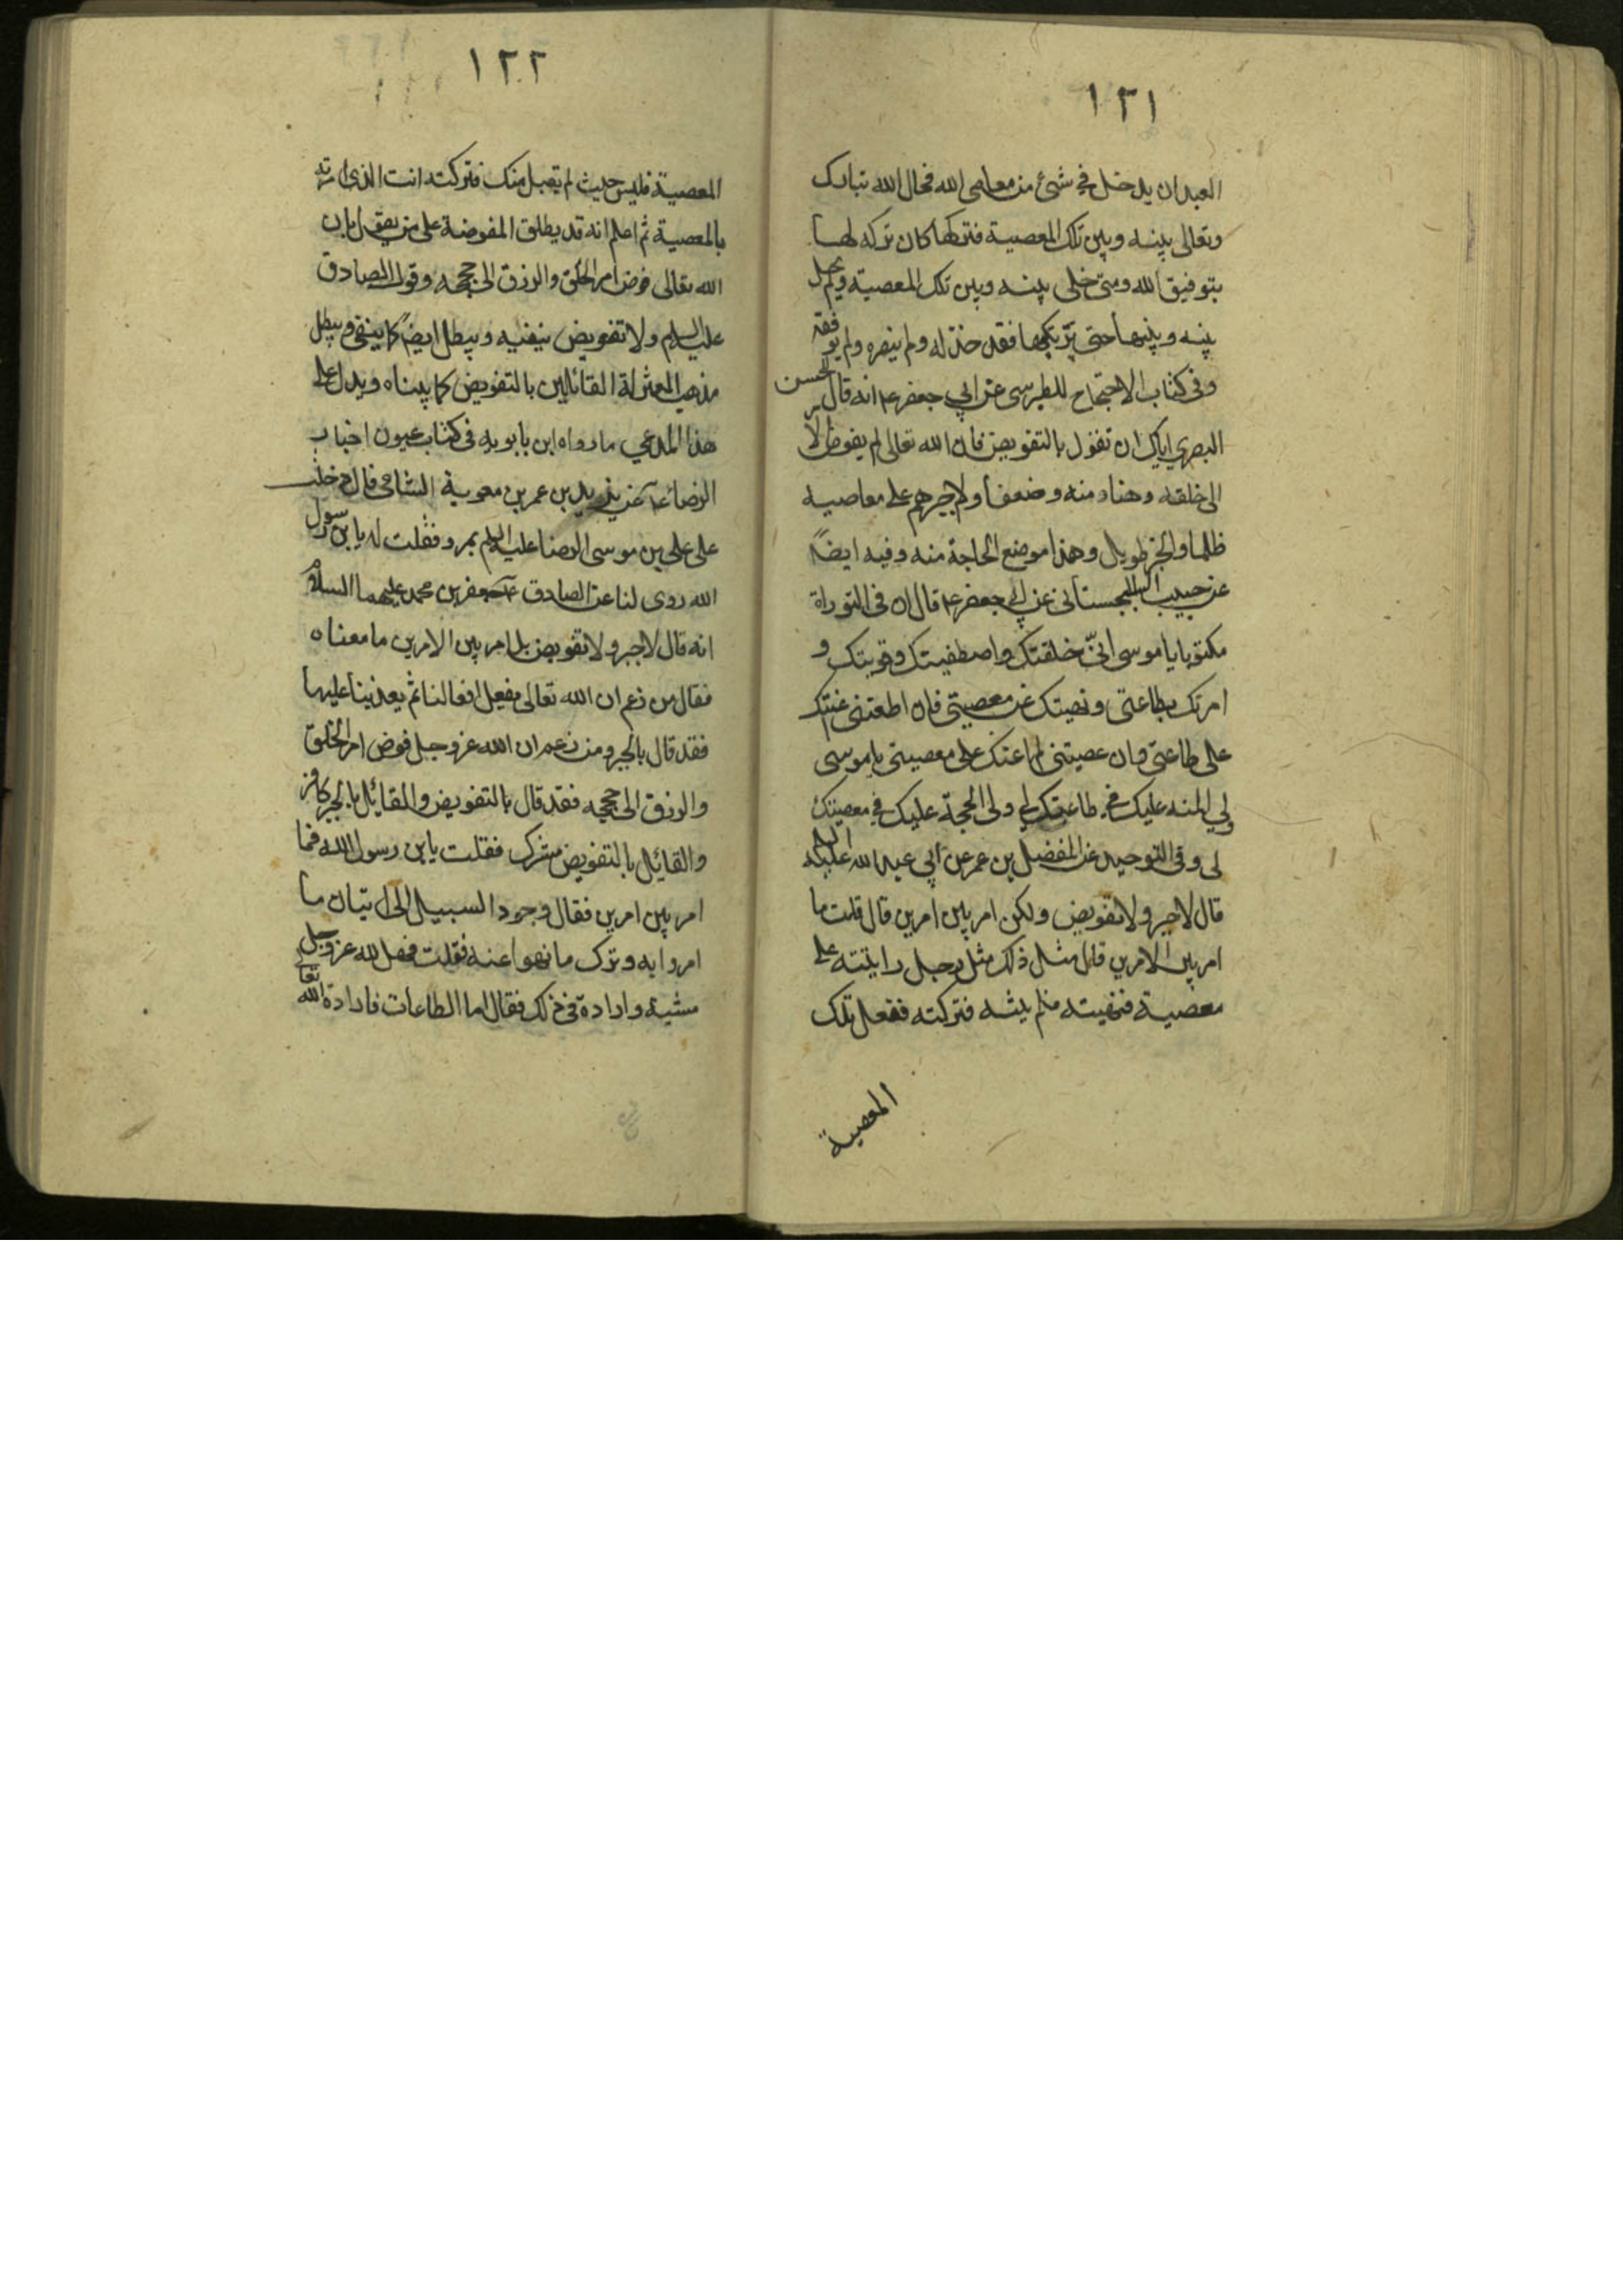 ١٢١
العبد ان يدخل في شئ من معاصي الله فحال الله تبارك
وتعالى بينه وبين تلك المعصية فتركها كان تركه لها
بتوفيق الله ومتى خلى بينه وبين تلك المعصية ولم يحل
بينه وبينها حتى يرتكبها فقد خذله ولم ينصره ولم يوفقه
وفى كتاب الاحتجاج للطبرسى عن ابي جعفر ع انه قال للحسن
البصري اياك ان تقول بالتفويض فان الله تعالى لم يفوض الامر
الى خلقه وهنا منه وضعفا ولا جبرهم على معاصيه
ظلما والخبر طويل وهذا موضع الحاجة منه وفيه ايضاً
عن حبيب السجستانى عن ابي جعفر ع قال ان فى التوراة
مكتوبا يا موسى انّى خلقتك واصطفيتك وقويتك و
امرتك بطاعتى ونهيتك عن معصيتى فان اطعتنى اعنتك
على طاعتى وان عصيتنى لم اعنك على معصيتى يا موسى
ولي المنه عليك في طاعتك لي ولى الحجة عليك في معصيتك
لى وفى التوحيد عن المفضل بن عمر عن ابي عبد الله عليه السلام
قال لا جبر ولا تفويض ولكن امر بين امرين قال قلت ما
امر بين الامرين قال مثل ذلك مثل رجل رايته على
معصية فنهيته فلم ينته فتركته ففعل تلك
المعصية
١٢٢
المعصية فليس حيث لم يقبل منك فتركته انت الذى امرته
بالمعصية ثم اعلم انه قد يطلق المفوضة على من يقول بان
الله تعالى فوض امر الخلق والرزق الى حججه وقول الصادق
عليه السلام ولا تفويض ينفيه ويبطل ايضا كما ينفى ويبطل
مذهب المعتزلة القائلين بالتفويض كما بيناه ويدل على
هذا المدعي ما رواه ابن بابويه فى كتاب عيون اخبار
الرضا ع عن يزيد بن عمر بن معوية الشامى قال دخلت
على على بن موسى الرضا عليه السلام بمرو فقلت له يا بن رسول
الله روى لنا عن الصادق جعفر بن محمد عليهما السلام
انه قال لا جبر ولا تفويض بل امر بين الامرين ما معناه
فقال من زعم ان الله تعالى يفعل افعالنا ثم يعذبنا عليها
فقد قال بالجبر ومن زعم ان الله عز وجل فوض امر الخلق
والرزق الى حججه فقد قال بالتفويض والقايل بالجبر كافر
والقايل بالتفويض مشرك فقلت يا بن رسول الله فما
امر بين امرين فقال وجود السبيل الى اتيان ما
امروا به وترك ما نهوا عنه فقلت فهل لله عز وجل
مشية وارادة فى ذلك فقال اما الطاعات فارادة الله تعالى